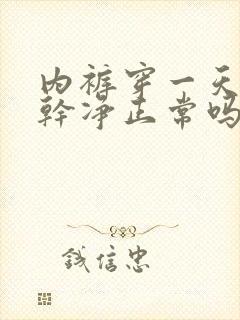 内裤穿一天
幹净正常吗
钱信忠